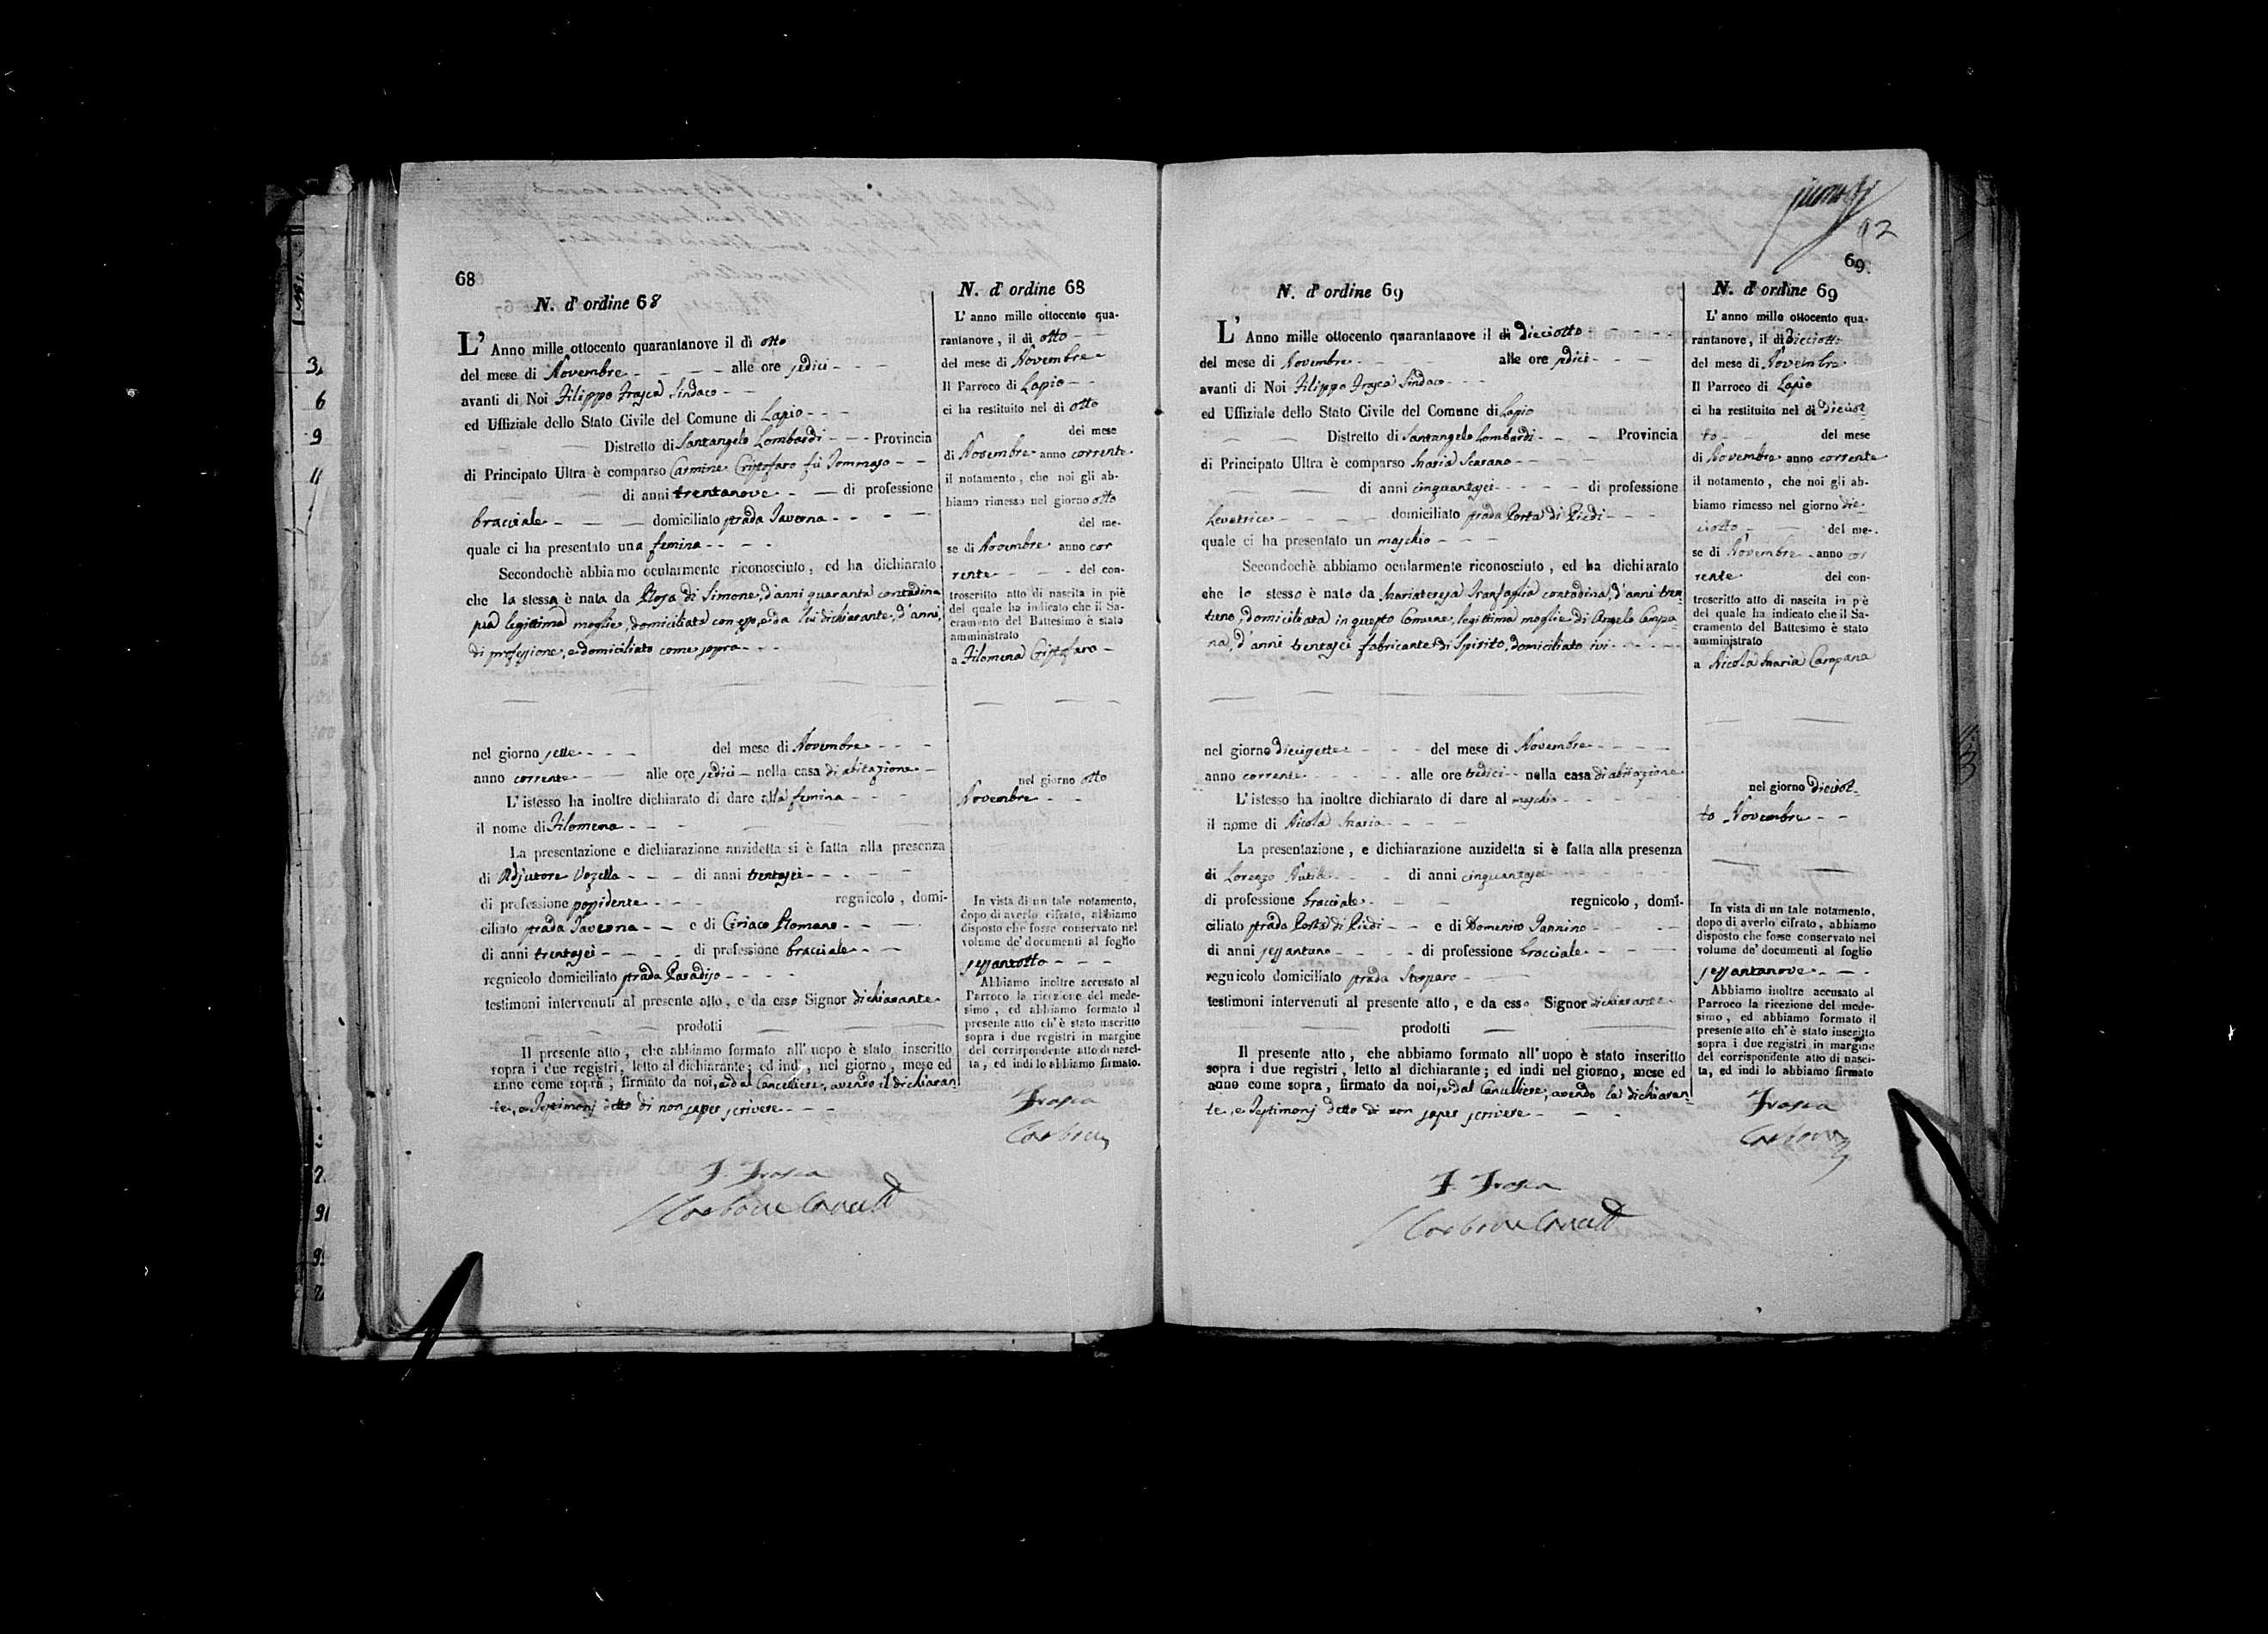 68
N. d' ordine 68
L' Anno mille ottocento quarantanove il dì otto
del mese di Novembre - - - - alle ore sedici - - -
avanti di Noi Filippo Frasca Sindaco - -
ed Uffiziale dello Stato Civile del Comune di Lapio - - -
Distretto di Santangelo Lombardi - - - Provincia
di Principato Ultra è comparso Carmine Cristofaro fù Tommaso - -
di anni trentanove - - di professione
bracciale - - - domiciliato strada Taverna - - - -
quale ci ha presentato una femina - - - -
Secondochè abbiamo ocularmente riconosciuto, ed ha dichiarato
che la stessa è nata da Rosa di Simone, d'anni quaranta contadina
sua legittima moglie, domiciliata con esso, e da lui dichiarante, d'anni,
di professione, e domiciliato come sopra - - -
nel giorno sette - - - - del mese di Novembre - - -
anno corrente - - alle ore sedici - nella casa di abitazione -
L' istesso ha inoltre dichiarato di dare alla femina - - -
il nome di Filomena - - -
La presentazione e dichiarazione anzidetta si è fatta alla presenza
di Adjutore Vozella - - - di anni trentasei - - - -
di professione possidente - - - regnicolo, domi-
ciliato strada Taverna - - e di Ciriaco Romano - - -
di anni trentasei - - - - di professione bracciale - -
regnicolo domiciliato strada Paradiso - - - -
testimoni intervenuti al presente atto, e da esso Signor dichiarante
prodotti
Il presente atto, che abbiamo formato all' uopo è stato inscritto
sopra i due registri, letto al dichiarante; ed indi, nel giorno, mese ed
anno come sopra, firmato da noi, e dal Cancelliere, avendo il dichiaran
te, e Testimonj detto di non saper scrivere - - -
F. Frasca
Carbone Cancell
N. d' ordine 68
L' anno mille ottocento qua-
rantanove, il dì otto - -
del mese di Novembre -
Il Parroco di Lapio - -
ci ha restituito nel dì otto
del mese
di Novembre anno corrente
il notamento, che noi gli ab-
biamo rimesso nel giorno otto
del me-
se di Novembre anno cor
rente - - - del con-
troscritto atto di nascita in piè
del quale ha indicato che il Sa-
cramento del Battesimo è stato
amministrato
a Filomena Cristofaro -
nel giorno otto
Novembre - -
In vista di un tale notamento,
dopo di averlo cifrato, abbiamo
disposto che fosse conservato nel
volume de' documenti al foglio
sessantotto - - -
Abbiamo inoltre accusato al
Parroco la ricezione del mede-
simo, ed abbiamo formato il
presente atto ch' è stato inscritto
sopra i due registri in margine
del corrispondente atto di nasci-
ta, ed indi lo abbiamo firmato.
Frasca
Carbone
92
69.
N. d' ordine 69
L' Anno mille ottocento quarantanove il dì dieciotto - - - -
del mese di Novembre - - - - alle ore sedici - - -
avanti di Noi Filippo Frasca Sindaco - - -
ed Uffiziale dello Stato Civile del Comune di Lapio
Distretto di Santangelo Lombardi - - - Provincia
di Principato Ultra è comparso Maria Scarano - - -
di anni cinquantasei - - - - di professione
Levatrice - - - - domiciliato strada Porta di Piedi - - -
quale ci ha presentato un maschio - - -
Secondochè abbiamo ocularmente riconosciuto, ed ha dichiarato
che lo stesso è nato da Mariateresa Tranfaglia contadina, d'anni tren
tuno, domiciliata in questo Comune, legittima moglie di Angelo Campa-
na, d'anni trentasei fabricante di Spirito, domiciliato ivi - - - -
nel giorno diecisette - - - del mese di Novembre - - - -
anno corrente - - - - alle ore tredici - - nella casa di abitazione
L' istesso ha inoltre dichiarato di dare al maschio - - - -
il nome di Nicola Maria - - - -
La presentazione, e dichiarazione anzidetta si è fatta alla presenza
di Lorenzo - - - di anni cinquantasei
di professione bracciale - - - regnicolo, domi-
ciliato strada Porta di Piedi - - e di Domenico Iannino - - -
di anni sessantuno - - - - di professione bracciale - - -
regnicolo domiciliato strada
testimoni intervenuti al presente atto, e da esso Signor dichiarante
prodotti
Il presente atto, che abbiamo formato all' uopo è stato inscritto
sopra i due registri, letto al dichiarante; ed indi nel giorno, mese ed
anno come sopra, firmato da noi, e dal Cancelliere, avendo la dichiaran
te, e Testimonj detto di non saper scrivere - - -
F. Frasca
Carbone Cancell
N. d' ordine 69
L' anno mille ottocento qua-
rantanove, il dì Dieciotto
del mese di Novembre
Il Parroco di Lapio
ci ha restituito nel dì dieciot-
to - - del mese
di Novembre anno corrente
il notamento, che noi gli ab-
biamo rimesso nel giorno die-
ciotto - - del me-
se di Novembre - anno cor
rente del con-
troscritto atto di nascita in piè
del quale ha indicato che il Sa-
cramento del Battesimo è stato
amministrato
a Nicola Maria Campana
nel giorno dieciot-
to Novembre - -
In vista di un tale notamento,
dopo di averlo cifrato, abbiamo
disposto che forse conservato nel
volume de' documenti al foglio
sessantanove - - -
Abbiamo inoltre accusato al
Parroco la ricezione del mede-
simo, ed abbiamo formato il
presente atto ch' è stato inscritto
sopra i due registri in margine
del corrispondente atto di nasci-
ta, ed indi lo abbiamo firmato
Frasca
Carbone